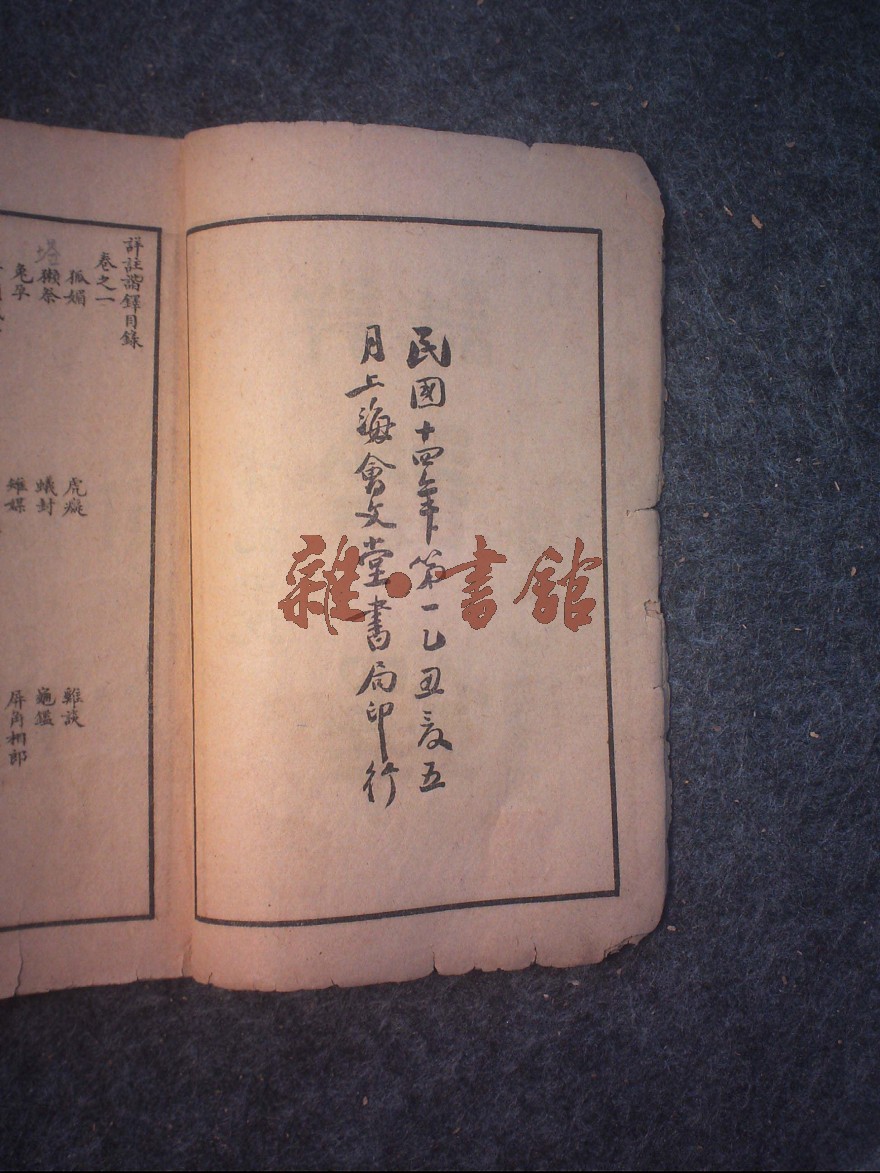 民國十四年第一乙丑夏五
月上海會文堂書局印行
雜·書館
詳註諧鐸目錄
卷之一
狐媚
虎癡
雞談
獺祭
蟻封
龜鑑
兔孕
雉媒
屏角相郎